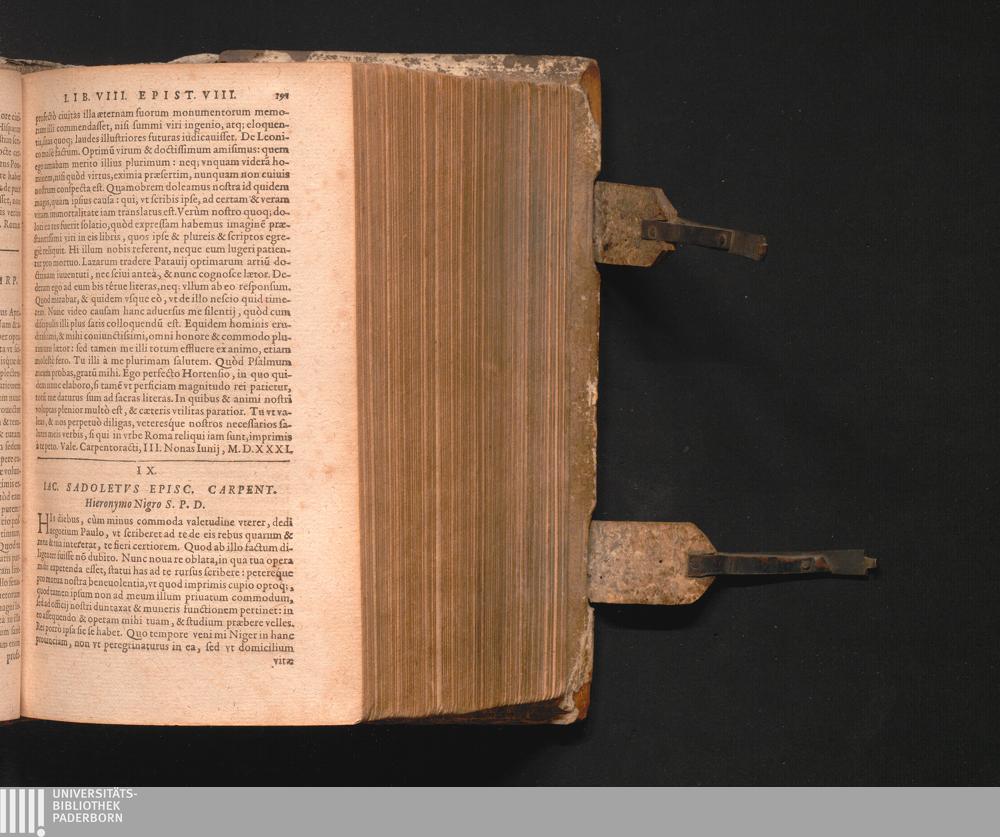 LIB. VIII. EPIST. VIII. 191
perfectò ciuitas illa æternam suorum monumentorum memo-
riam illi commendasset, nisi summi viri ingenio, atq; eloquen-
tia, suas quoq; laudes illustriores futuras iudicauisset. De Leoni-
co malè factum. Optimũ virum & doctissimum amisimus: quem
ego amabam merito illius plurimum: neq; vnquam viderã ho-
minem, nisi quòd virtus, eximia præsertim, nunquam non cuiuis
nostrum conspecta est. Quamobrem doleamus nostra id quidem
magis, quam ipsius causa: qui, vt scribis ipse, ad certam & veram
vitam immortalitate iam translatus est. Verùm nostro quoq; do-
lori ea res fuerit solatio, quòd expressam habemus imaginẽ præ-
stantissimi viri in eis libris, quos ipse & plureis & scriptos egre-
giè reliquit. Hi illum nobis referent, neque eum lugeri patien-
tur pro mortuo. Lazarum tradere Patauij optimarum artiũ do-
ctrinam iuuentuti, nec sciui anteà, & nunc cognosce lætor. De-
deram ego ad eum bis térue literas, neq: vllum ab eo responsum.
Quod mirabar, & quidem vsque eò, vt de illo nescio quid time-
rem. Nunc video causam hanc aduersus me silentij, quòd cum
discipulis illi plus satis colloquendũ est. Equidem hominis eru-
ditissimi, & mihi coniunctissimi, omni honore & commodo plu-
rimum lætor: sed tamen me illi totum effluere ex animo, etiam
molestè fero. Tu illi à me plurimam salutem. Quòd Psalmum
meum probas, gratũ mihi. Ego perfecto Hortensio, in quo qui-
dem nunc elaboro, si tamẽ vt perficiam magnitudo rei patietur,
totũ me daturus sum ad sacras literas. In quibus & animi nostri
voluptas plenior multò est, & cæteris vtilitas paratior. Tu vt va-
leas, & nos perpetuò diligas, veteresque nostros necessarios sa-
lutes meis verbis, si qui in vrbe Roma reliqui iam sunt, imprimis
à te peto. Vale. Carpentoracti, III. Nonas Iunij, M. D. XXXI.
IX.
IAC. SADOLETVS EPISC. CARPENT.
Hieronymo Nigro S. P. D.
HIs diebus, cùm minus commoda valetudine vterer, dedi
negotium Paulo, vt scriberet ad te de eis rebus quarum &
mea & tua interetat, te fieri certiorem. Quod ab illo factum di-
ligenter fuisse nõ dubito. Nunc noua re oblata, in qua tua opera
mihi expetenda esset, statui has ad te rursus scribere: petereque
pro mutua nostra beneuolentia, vt quod imprimis cupio optoq;,
quod tamen ipsum non ad meum illum priuatum commodum,
sed ad officij nostri duntaxat & muneris functionem pertinet: in
eo assequendo & operam mihi tuam, & studium præbere velles.
Res porrò ipsa sic se habet. Quo tempore veni mi Niger in hanc
prouinciam, non vt peregrinaturus in ea, sed vt domicilium
vitæ
UNIVERSITÄTS-
BIBLIOTHEK
PADERBORN